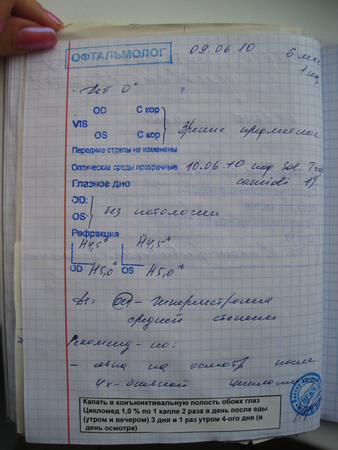 ОФТАЛЬМОЛОГ 09.06.10 6 мес
OD С кор
VIS Зрение предметное
OS С кор
Передние отделы не изменены
Оптические среды прозрачные 10.06.10 под Sol.
Глазное дно:
OD:
без патологии
OS:
Рефракция
H4,5 H4,5
OD H5,0 OS H5,0
Ds: OU - гиперметропия
средней степени
- явка на осмотр после
4х-дневной
Капать в конъюнктивальную полость обоих глаз
Цикломед 1,0 % по 1 капле 2 раза в день после еды
(утром и вечером) 3 дня и 1 раз утром 4-ого дня (в
день осмотра)